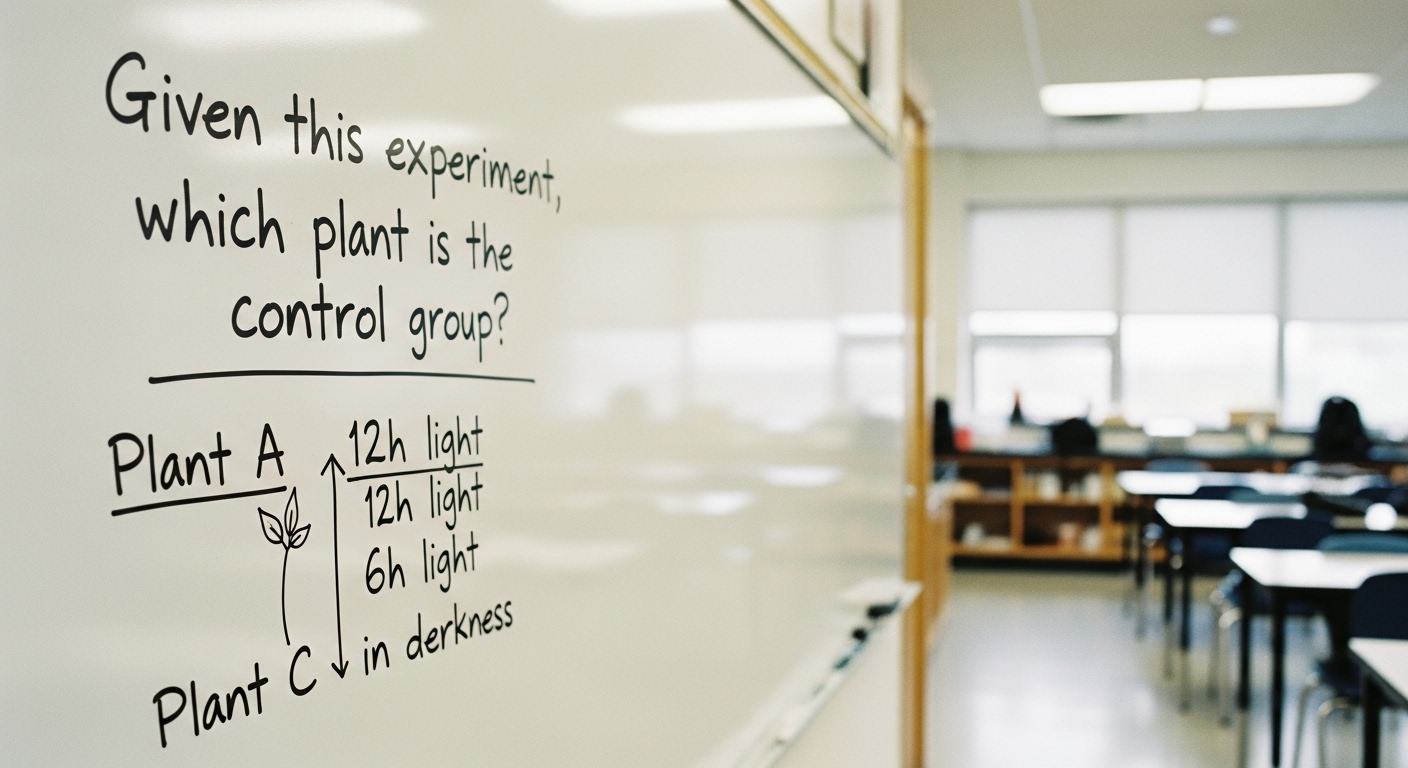 Given this experiment,
which plant is the
control group?
Plant A
12h light
12h light
6h light
in derkness
Plant C